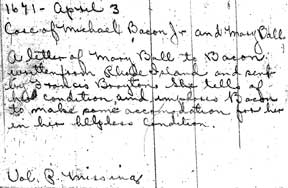 1671 - April 3
Case of Michael Bacon Jr. and Mary Ball
A letter of Mary Ball to Bacon
written from Rhode Island and sent
by Francis she tells of
her condition and Bacon
to make some for her
in her helpless condition.
Vol. P. Missing